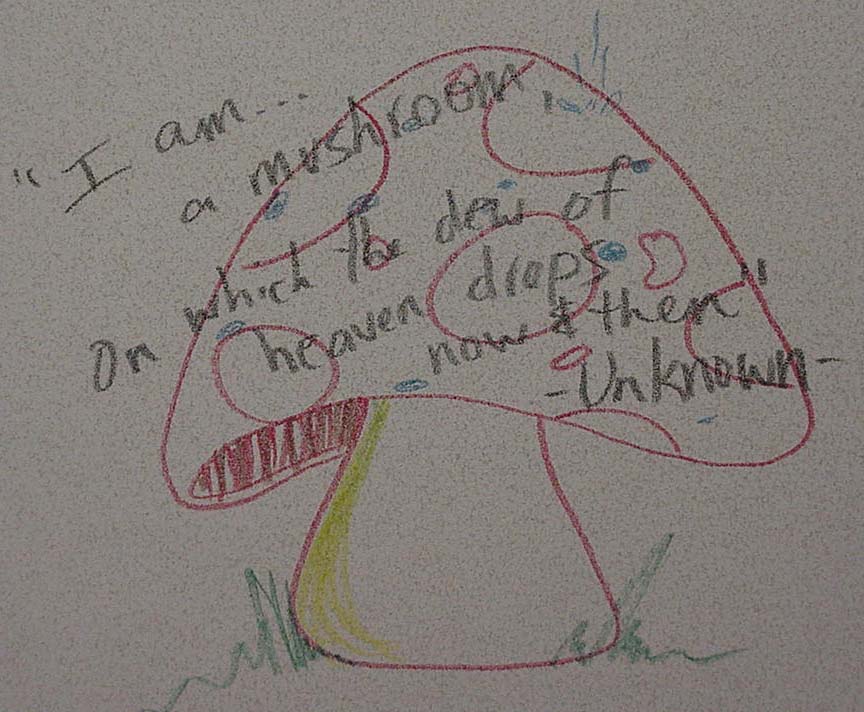 "I am...
a mushroom,
On which the dew of
heaven drops
now & then"
-Unknown-